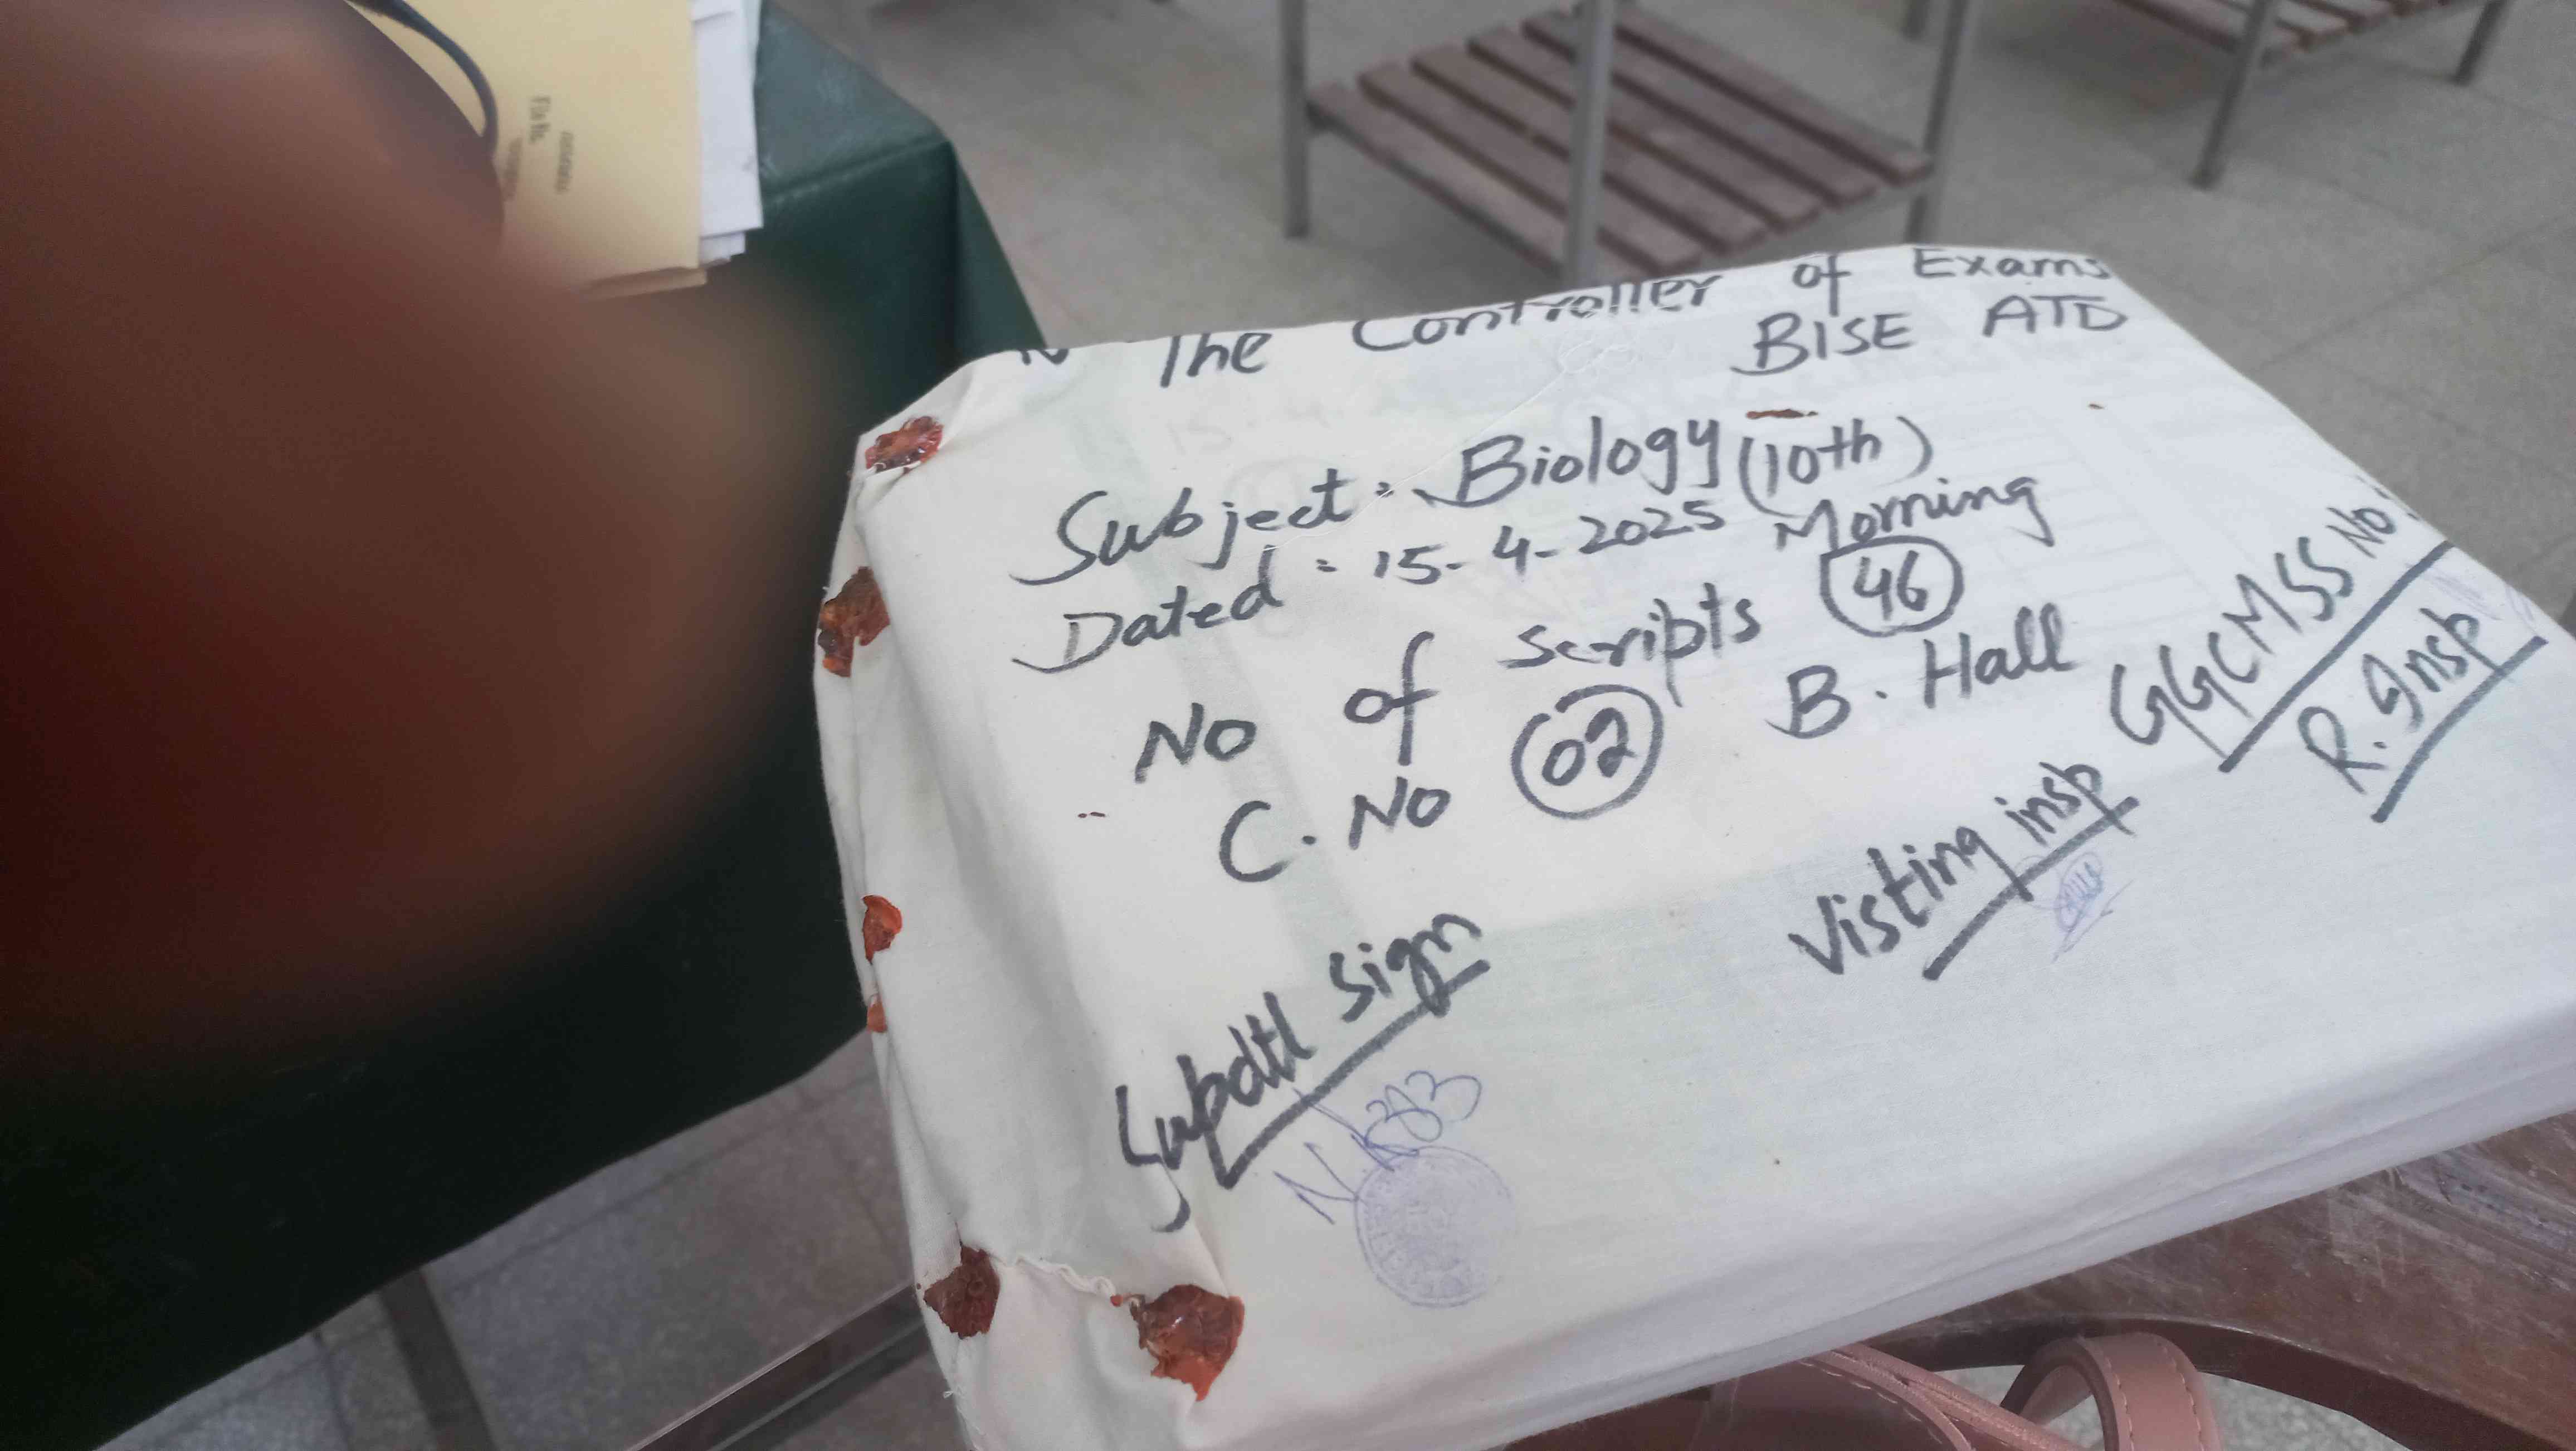 The Controller of Exams
BISE ATD
Subject: Biology (10th)
Dated: 15-4-2025 Morning
No of Scripts 46
C. No 02 B. Hall
GGCMSS No:
Supdtt Sign
Visting insp
R. Insp
File No.